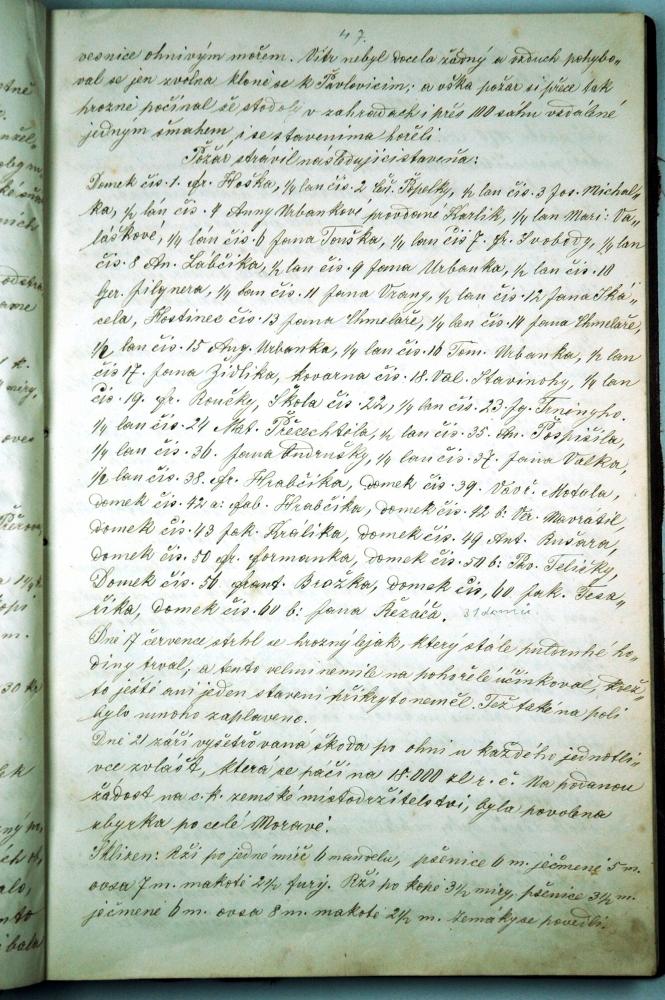 47.
vesnice ohnivým mořem. Vítr nebyl docela žádný a vzduch pohybo„
val se jen zvolna kloně se k Pavlovicím; a však požár si přece tak
hrozně počínal že stodoly v zahradách i přes 100 sáhu vzdálené
jedným šmahem i se staveníma hořeli
Požár strávil následující stavěňa:
Domek čís. 1. Fr. Hoška, ¼ lan čís. 2 Popelky, ½ lan čís. 3 Jos. Michal„
ka, ½ lán čís. 4 Anny Urbankové provdané Karlík, ¼ lan Mari: Va„
láškové, ¼ lán čís. 6 Jana Touška, ¼ lan čís 7. Fr. Svobody, ¼ lan
čís. 8 An. Labčíka, ½ lan čís. 9 Jana Urbanka, ½ lan čís. 10
Fer. Filgnera, ¼ lan čís. 11 Jana Vrany, ½ lan čís. 12 Jana Ská„
cela, Hostinec čís. 13 Jana Chmelaře, ¼ lan čís. 14 Jana Chmelaře,
½ lan čís. 15 Aug. Urbanka, ¼ lan čís. 16 Tom. Urbanka, ½ lan
čís 17. Jana Zidlika, kovarna čís. 18. Val. Stavinohy, ¼ lan
čís. 19. Fr. Boučky, Škola čís 22, ¼ lan čís. 23. Ig. Trningho.
¼ lan čís. 24 Mat. Přecechtěla, ½ lan čís. 35. An. Pospíšila,
¼ lan čís. 36. Jana Ondrušky, ¼ lan čís. 37. Jana Valka,
½ lan čís. 38. Fr. Hrabčíka, domek čís. 39. Vavř. Motala,
domek čís. 42 a: Fab. Hrabčíka, domek čís. 42 b: Navrátil,
domek čís. 43 Jak. Králika, domek čís. 49 Ant. Bušara,
domek čís. 50 Fr. Formanka, domek čís. 50 b: Teličky,
Domek čís. 56 Frant. Brožka, domek čís. 60 Jak. Tesa„
říka, domek čís. 60 b: Jana Řezáča. 31 domů.
Dne 17 července strhl se hrozný liják, který stále půldruhé ho„
diny trval; a tento velmi nemile na pohořelé účinkoval,
to ještě ani jeden stavení přikryto neměl. Též také na poli
bylo mnoho zaplaveno.
Dne 21 září vyšetřovaná škoda po ohni u každého jednotli„
vce zvlášť, která se páčí na 18.000 zl r. č. Na podanou
žádost na c. k. zemské místodržitelství, byla povolena
zbyrka po celé Moravě.
Sklizeň: Rži po jedné míře 6 mandelu, pšenice 6 m. ječmene 5 m.
ovsa 7 m. makoté 2½ fury. Rži po kopě 3½ míry, pšenice 3½ m.
ječmene 6 m. ovsa 8 m. makoté 2½ m. zemáky se povedli.